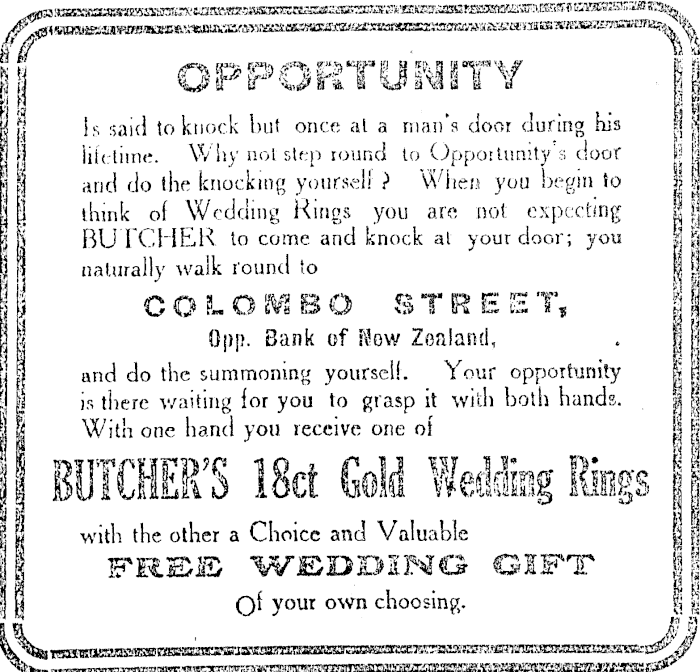 OPPORTUNITY
Is said to knock but once at a man's door during his
lifetime. Why not step round to Opportunity's door
and do the knocking yourself? When you begin to
think of Wedding Rings you are not expecting
BUTCHER to come and knock at your door; you
naturally walk round to
COLOMBO STREET,
Opp. Bank of New Zealand,
and do the summoning yourself. Your opportunity
is there waiting for you to grasp it with both hands.
With one hand you receive one of
BUTCHER'S 18ct Gold Wedding Rings
with the other a Choice and Valuable
FREE WEDDING GIFT
Of your own choosing.